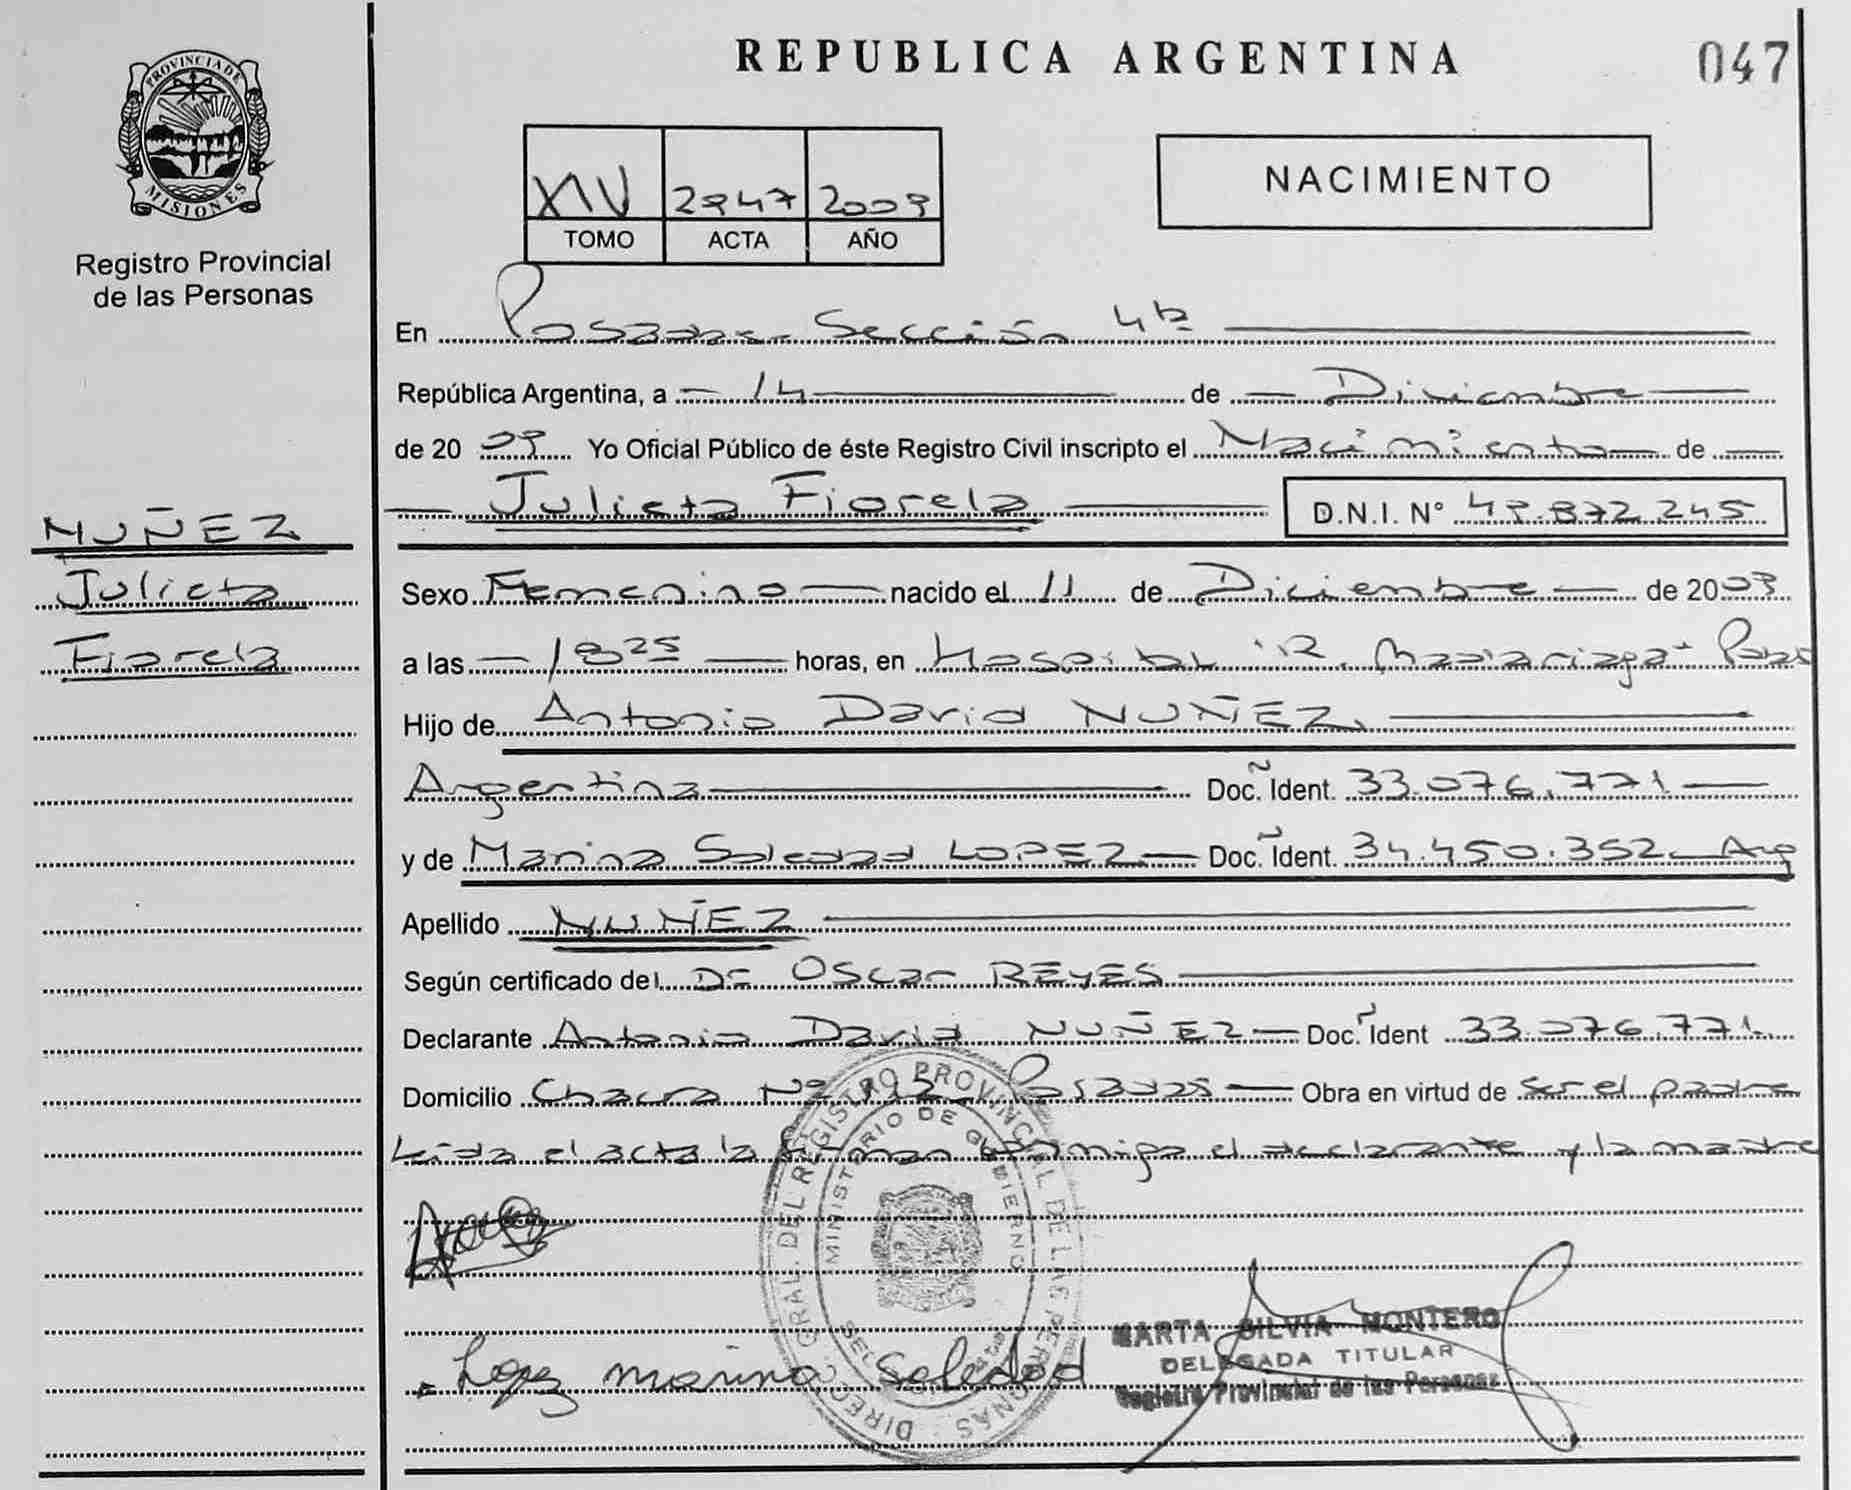 REPUBLICA ARGENTINA
047
PROVINCIA DE
MISIONES
Registro Provincial
de las Personas
XIV 2947 2009
TOMO ACTA AÑO
NACIMIENTO
En Posadas - Sección 4ta
República Argentina, a 14 de Diciembre
de 20 09 Yo Oficial Público de éste Registro Civil inscripto el Nacimiento de
Julieta Fiorela D.N.I. N° 49.872.245
NUÑEZ
Julieta
Fiorela
Sexo Femenino nacido el 11 de Diciembre de 2009
a las 18 25 horas, en Hospital "R. Madariaga - Posad
Hijo de Antonio David NUÑEZ
Argentina Doc. Ident. 33.076.771
y de Marina Soledad LOPEZ Doc. Ident. 34.450.352 Arg
Apellido NUÑEZ
Según certificado del Dr Oscar REYES
Declarante Antonio David NUÑEZ Doc. Ident 33.076.771
Domicilio Chacra Nº 192 Posadas Obra en virtud de ser el padre
Leída el acta la firman conmigo el declarante y la madre
DIREC. GRAL. DEL REGISTRO PROVINCIAL DE LAS PERSONAS
MINISTERIO DE GOBIERNO
Lopez marina Soledad
MARTA SILVIA MONTERO
DELEGADA TITULAR
Registro Provincial de las Personas